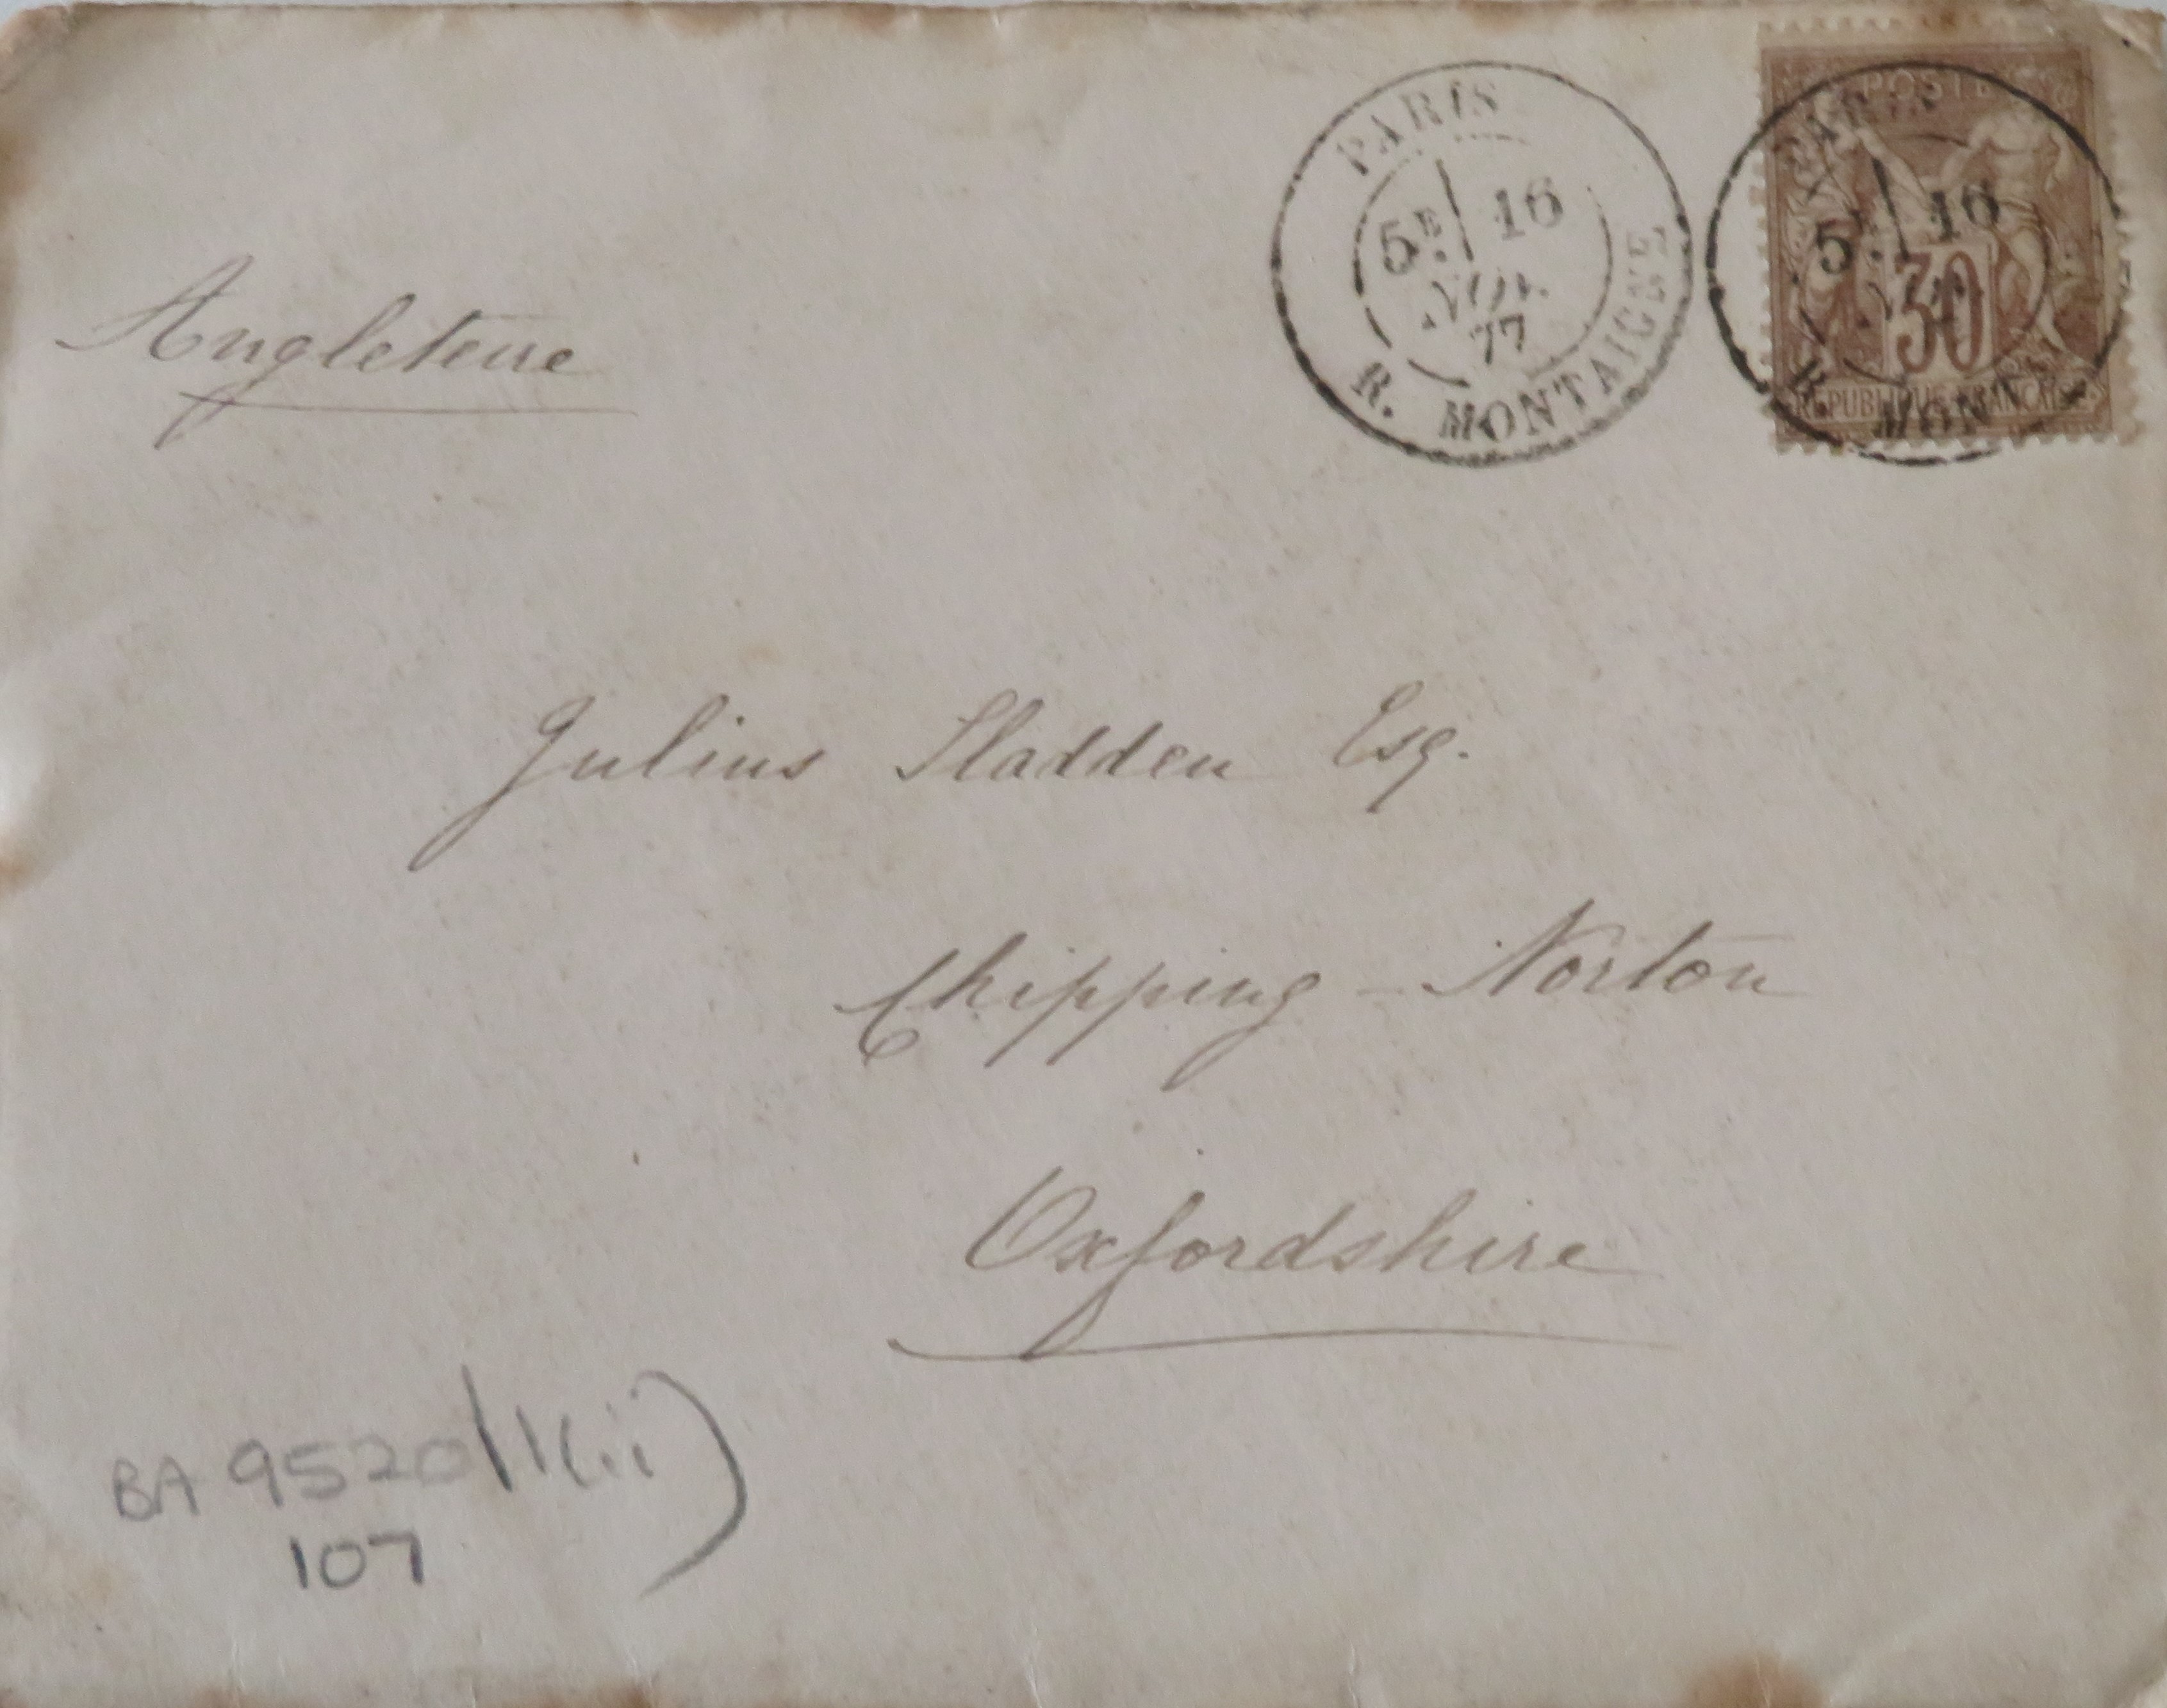 PARIS
5E 16
NOV.
77
R. MONTAIGNE
POSTE
PARIS
5E 16
30
REPUBLIQUE FRANCAISE
R. MON
Angleterre
Julius Sladden Esq.
Chipping - Norton
Oxfordshire
BA 9520/1(ii)
107